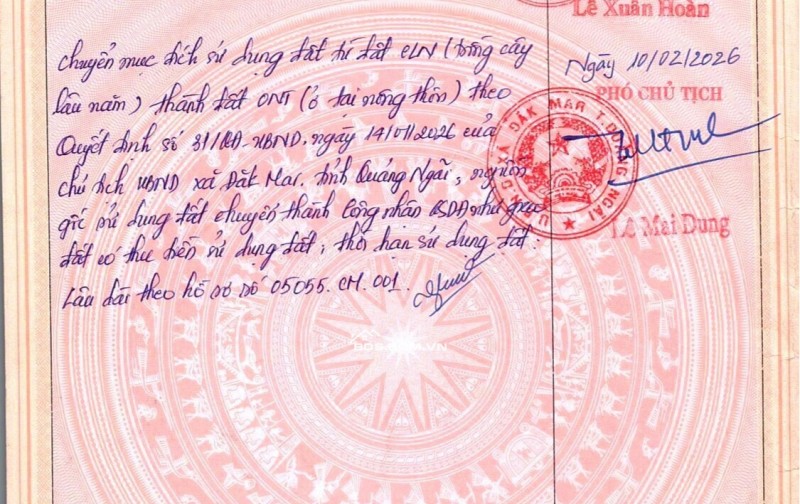 Lê Xuân Hoàn
Chuyển mục đích sử dụng đất từ đất CLN (trồng cây
lâu năm) thành đất ONT (ở tại nông thôn) theo
Quyết định số 31/QĐ-UBND, ngày 14/01/2026 của
chủ tịch UBND xã Đăk Mar, tỉnh Quảng Ngãi, nguồn
gốc sử dụng đất chuyển thành Công nhận QSDĐ như giao
đất có thu tiền sử dụng đất; thời hạn sử dụng đất:
Lâu dài theo hồ sơ số 05055.CM.001.
Ngày 10/02/2026
PHÓ CHỦ TỊCH
XÃ ĐĂK MAR T. QUẢNG NGÃI
Lê Mai Dung
BDS.VN